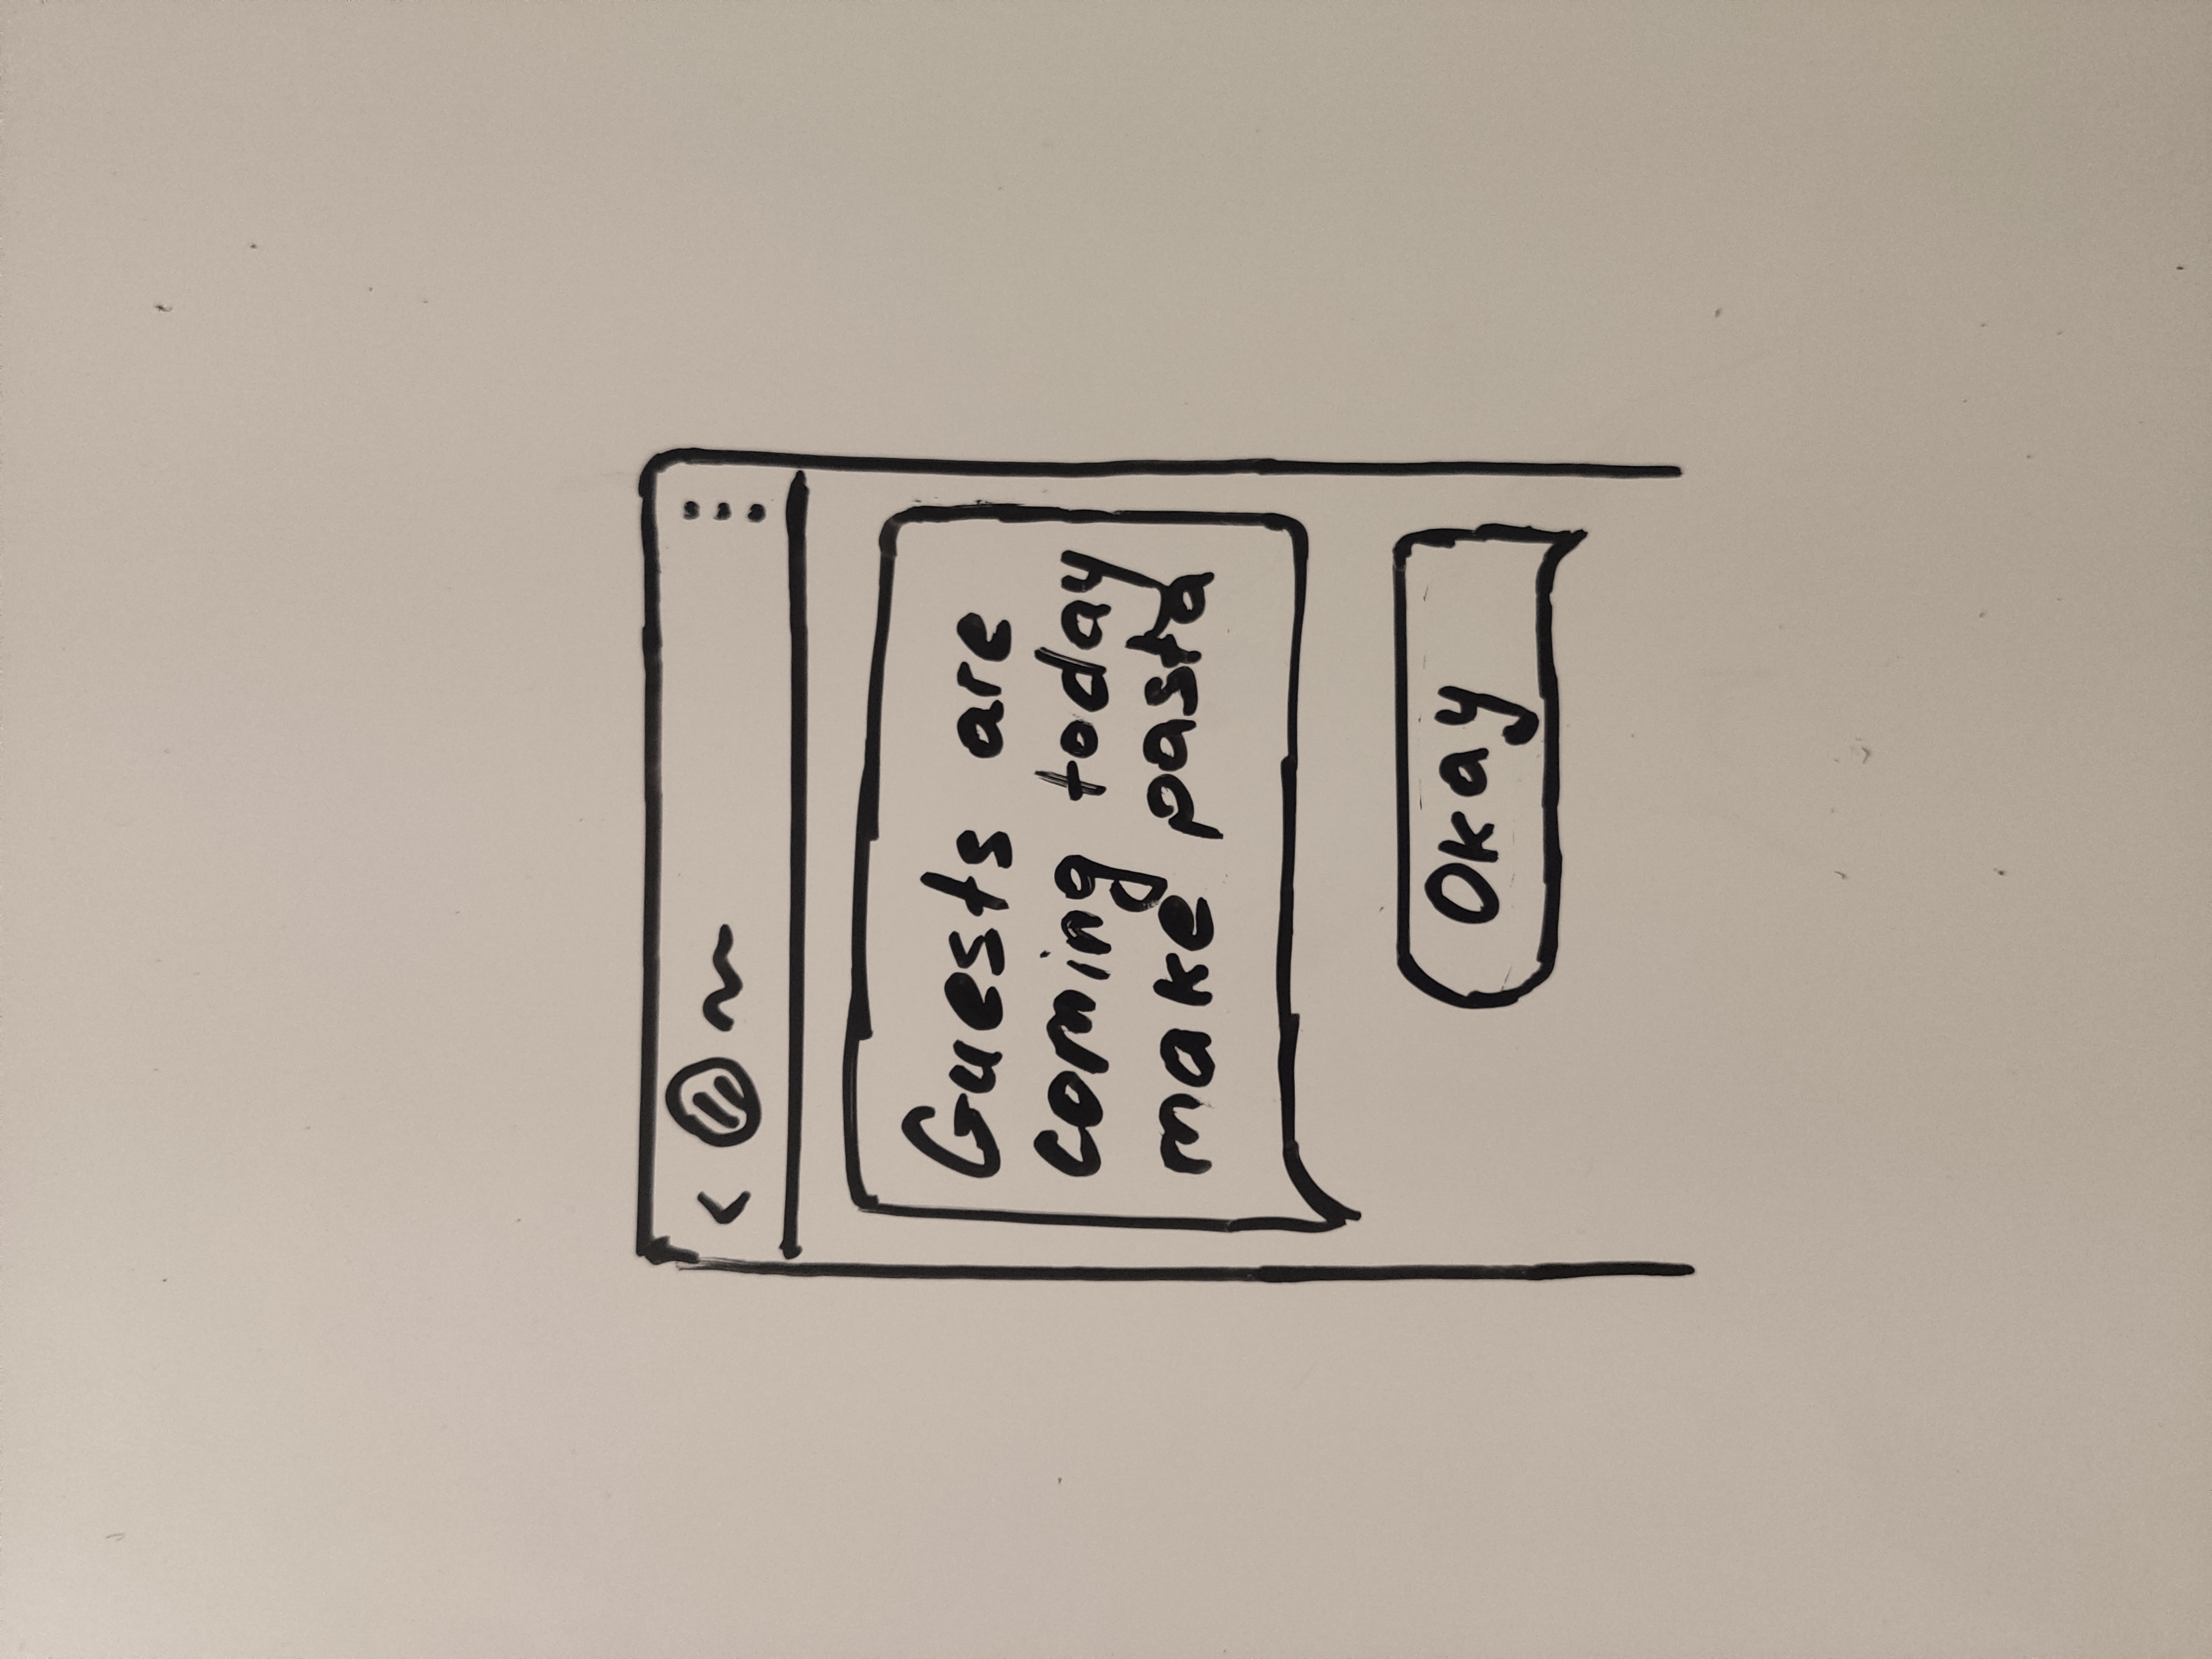 Guests are
coming today
make pasta
Okay